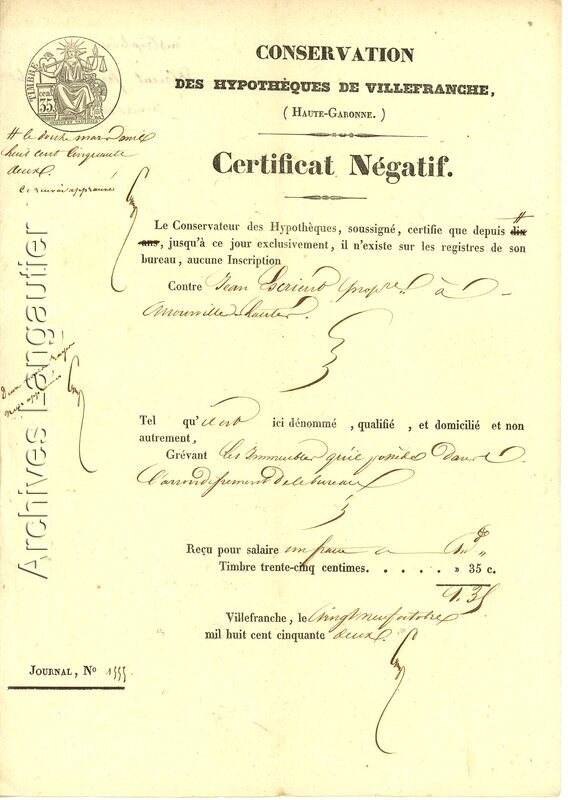 CONSERVATION
DES HYPOTHÈQUES DE VILLEFRANCHE,
( HAUTE-GARONNE. )
Certificat Négatif.
TIMBRE
35
cen
# le douze mars dame
huit cent cinquante
deux.
Ce renvoi approuvé
Le Conservateur des Hypothèques, soussigné, certifie que depuis # dix
ans, jusqu'à ce jour exclusivement, il n'existe sur les registres de son
bureau, aucune Inscription
Contre Jean Escrieut propre à
Tel qu'il est ici dénommé , qualifié , et domicilié et non
autrement,
Grévant les Immeubles qu'il possède dans
l'arrondissement de le bureau
Reçu pour salaire un franc 1 "
Timbre trente-cinq centimes. . . . . . » 35 c.
1. 35
Villefranche, le vingt neuf octobre
mil huit cent cinquante deux.
JOURNAL, No 1555
Archives Langautier